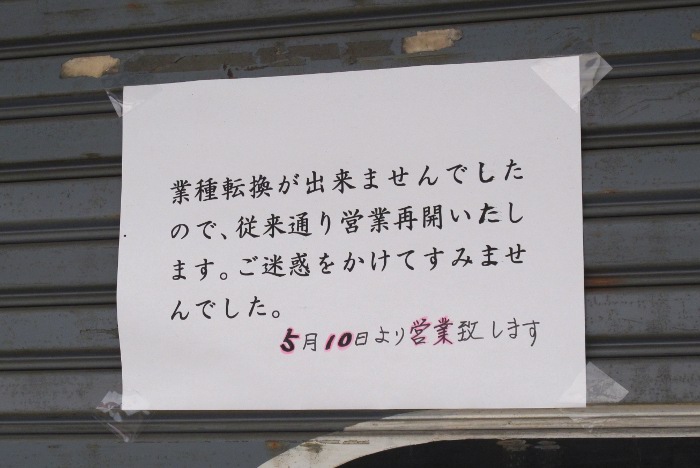 業種転換が出来ませんでした
ので、従来通り営業再開いたし
ます。ご迷惑をかけてすみませ
んでした。
5月10日より営業致します